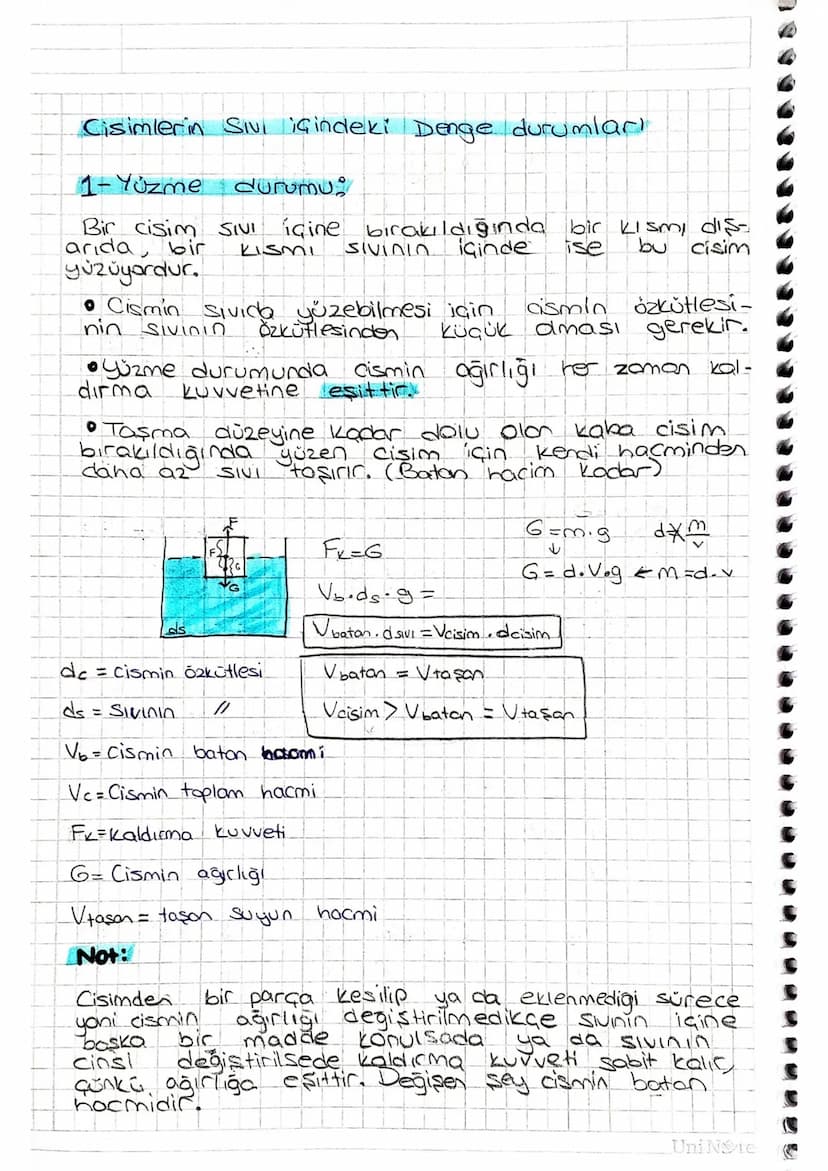 Cisimlerin Sıvı içindeki Denge durumları
1- Yüzme durumu:
Bir cisim sıvı içine bırakıldığında bir kısmı dış-
arıda, bir kısmı sıvının içinde ise bu cisim
yüzüyordur.
• Cismin sıvıda yüzebilmesi için cismin özkütlesi-
nin sıvının özkütlesinden küçük olması gerekir.
• Yüzme durumunda cismin ağırlığı her zaman kal-
dırma kuvvetine eşittir.
• Taşma düzeyine kadar dolu olan kaba cisim
bırakıldığında yüzen cisim için kendi hacminden
daha az sıvı taşırır. (Batan hacim kadar)
F
F
G
G
ds
Fk=G
Vb.ds.g =
G=m.g
d=m/v
G= d.V.g ← m=d.v
Vbatan.dsıvı=Vcisim.dcisim
Vbatan = Vtaşan
Vcisim > Vbatan = Vtaşan
dc = Cismin özkütlesi
ds = Sıvının //
Vb = Cismin batan hacmi
Vc = Cismin toplam hacmi
Fk=Kaldırma kuvveti
G= Cismin ağırlığı
Vtaşan = taşan suyun hacmi
Not:
Cisimden bir parça kesilip ya da eklenmediği sürece
yani cismin ağırlığı değiştirilmedikçe sıvının içine
başka bir madde konulsada ya da sıvının
cinsi değiştirilsede kaldırma kuvveti sabit kalır,
çünkü ağırlığa eşittir. Değişen şey cismin batan
hacmidir.
UniNote